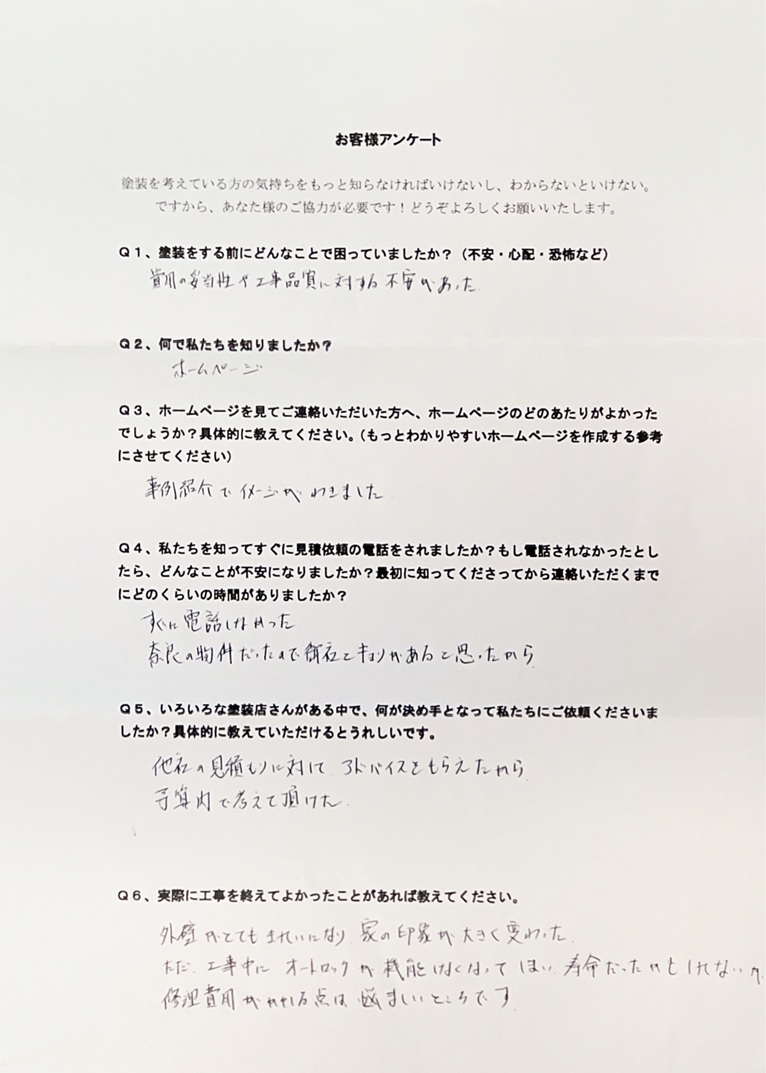 お客様アンケート
塗装を考えている方の気持ちをもっと知らなければいけないし、わからないといけない。
ですから、あなた様のご協力が必要です！どうぞよろしくお願いいたします。
Ｑ１、塗装をする前にどんなことで困っていましたか？（不安・心配・恐怖など）
費用の妥当性や工事品質に対する不安があった
Ｑ２、何で私たちを知りましたか？
ホームページ
Ｑ３、ホームページを見てご連絡いただいた方へ、ホームページのどのあたりがよかった
でしょうか？具体的に教えてください。（もっとわかりやすいホームページを作成する参考
にさせてください）
事例紹介でイメージがわきました
Ｑ４、私たちを知ってすぐに見積依頼の電話をされましたか？もし電話されなかったとし
たら、どんなことが不安になりましたか？最初に知ってくださってから連絡いただくまで
にどのくらいの時間がありましたか？
すぐに電話しなかった
奈良の物件だったので御社とキョリがあると思ったから
Ｑ５、いろいろな塗装店さんがある中で、何が決め手となって私たちにご依頼くださいま
したか？具体的に教えていただけるとうれしいです。
他社の見積もりに対して アドバイスをもらえたから
予算内で考えて頂けた
Ｑ６、実際に工事を終えてよかったことがあれば教えてください。
外壁がとてもきれいになり 家の印象が大きく変わった
ただ 工事中に オートロックが機能しなくなってしまい 寿命だったかもしれないが
修理費用がかかる点は 悩ましいところです